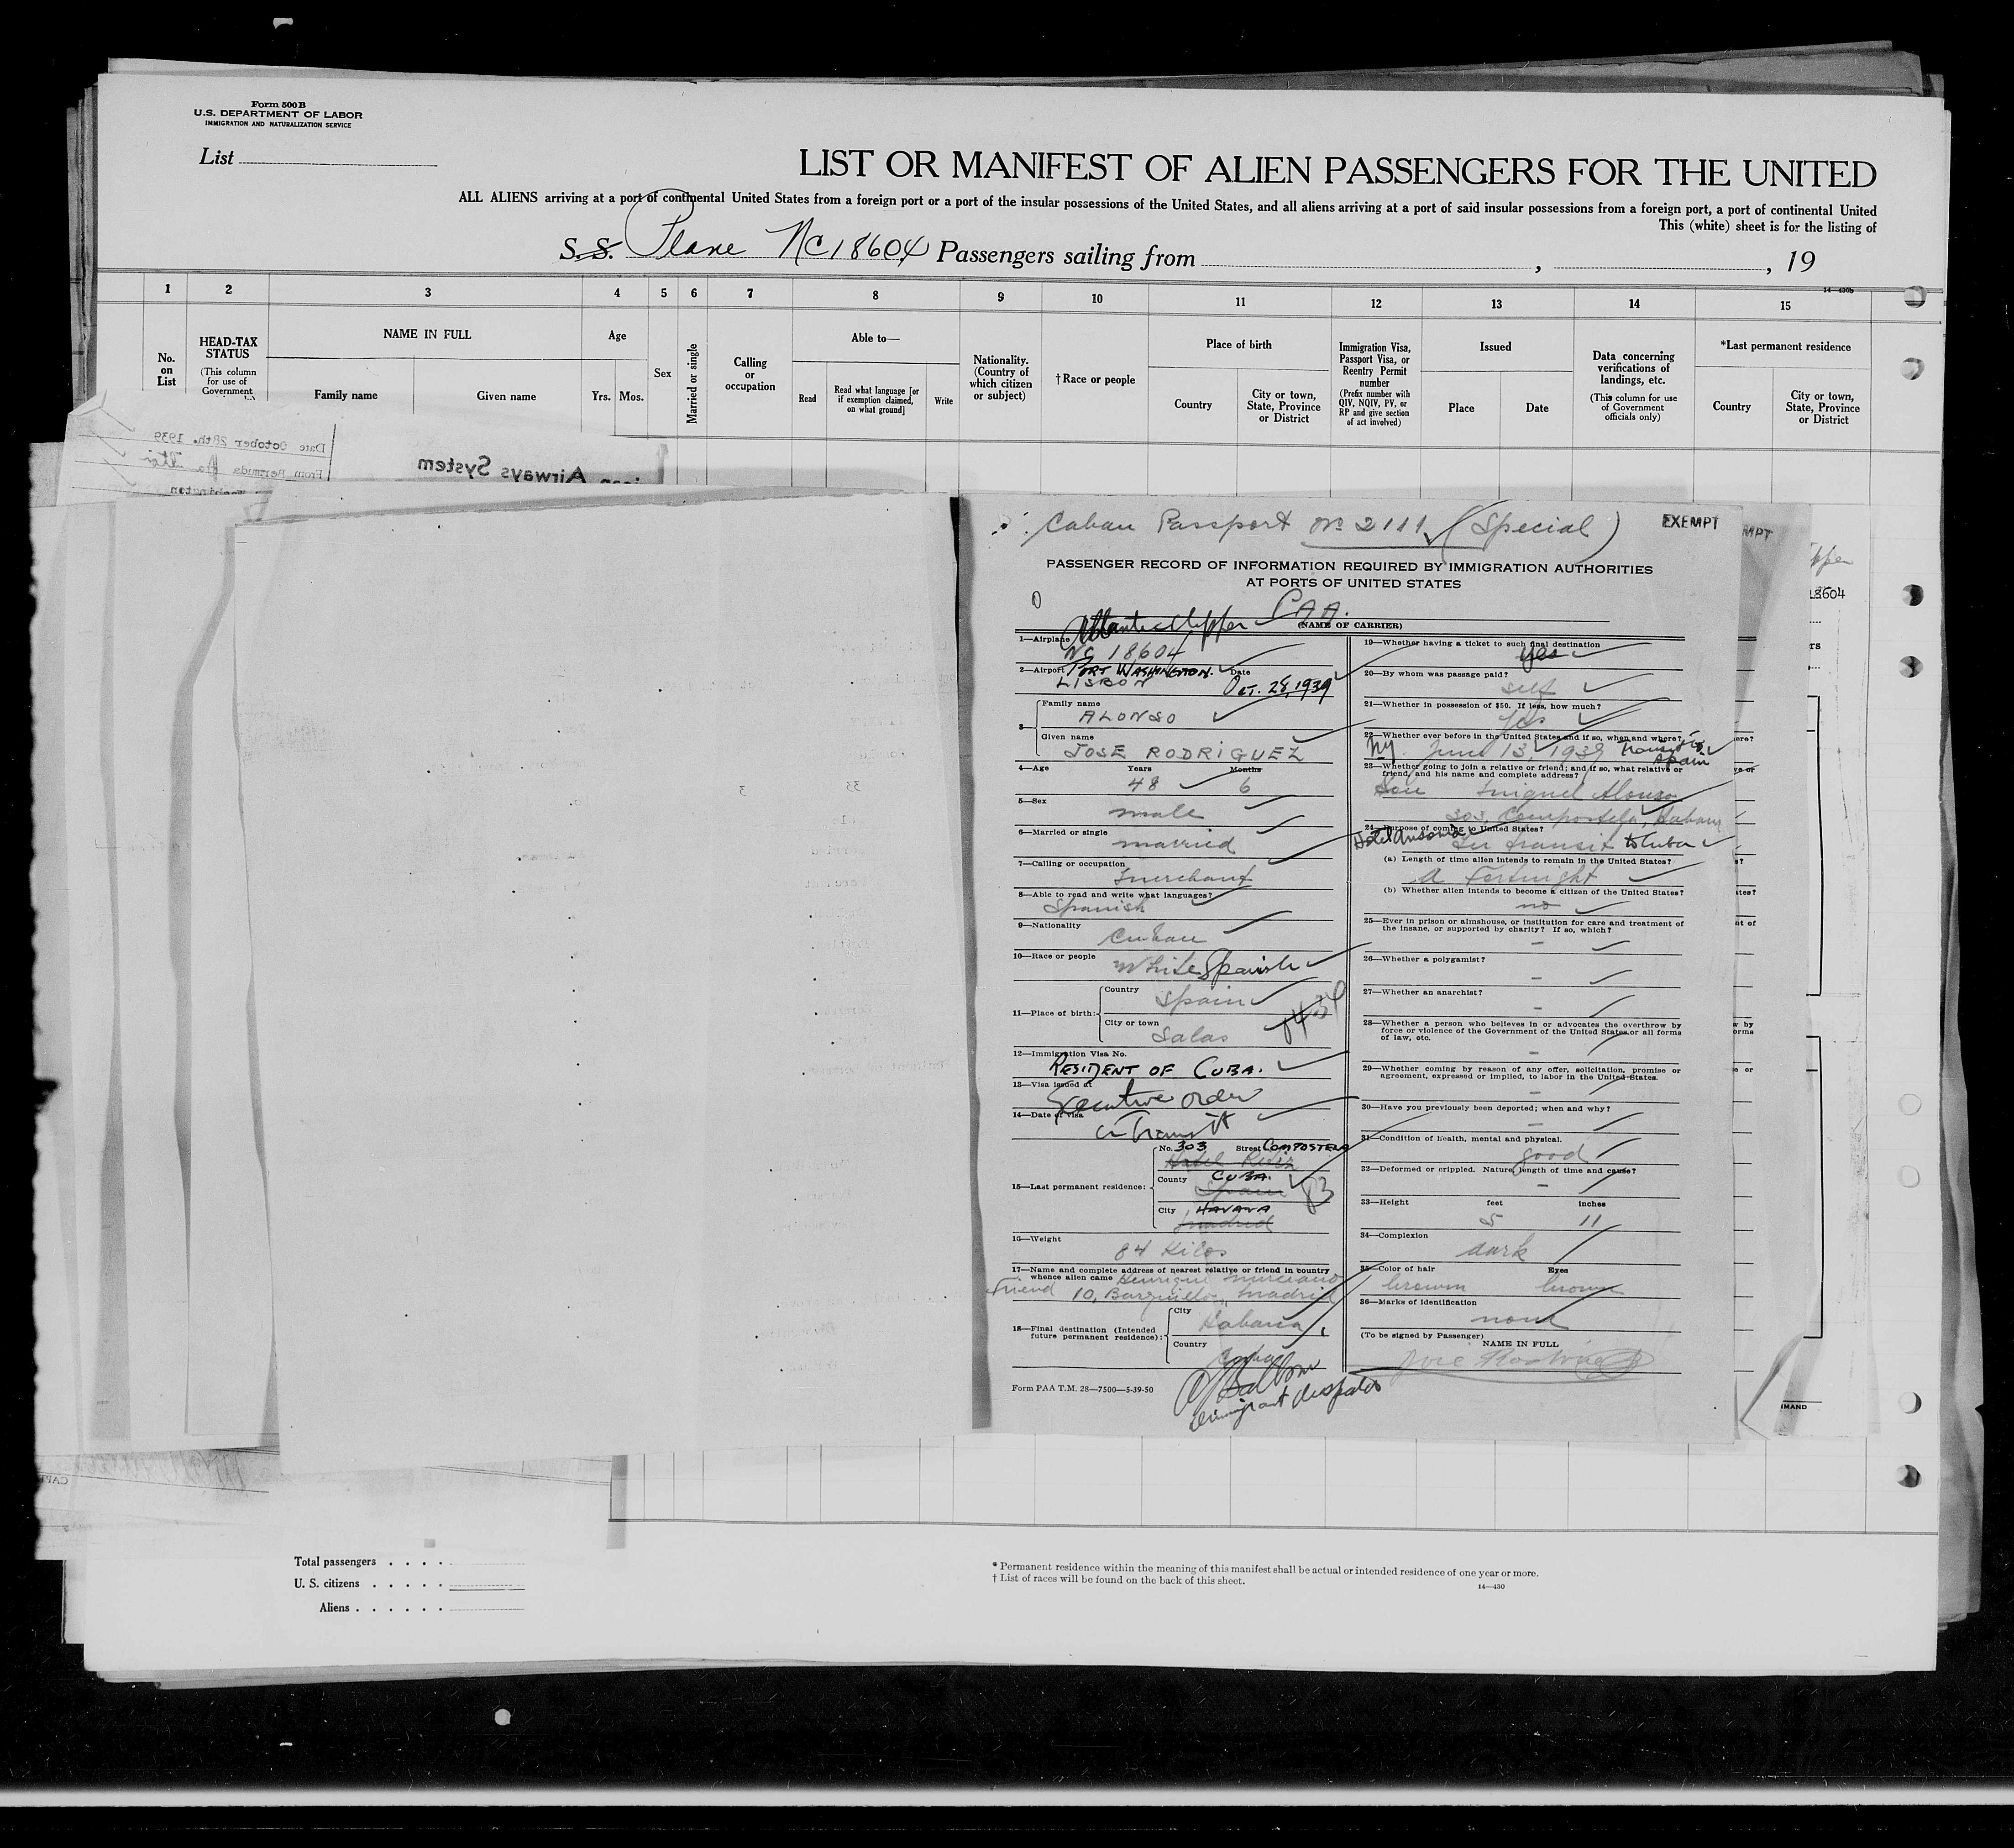 Form 500B
U.S. DEPARTMENT OF LABOR
IMMIGRATION AND NATURALIZATION SERVICE
List
LIST OR MANIFEST OF ALIEN PASSENGERS FOR THE UNITED
ALL ALIENS arriving at a port of continental United States from a foreign port or a port of the insular possessions of the United States, and all aliens arriving at a port of said insular possessions from a foreign port, a port of continental United
This (white) sheet is for the listing of
S.S. Plane NC18604 Passengers sailing from , , 19
14—430b
1 2 3 4 5 6 7 8 9 10 11 12 13 14 15
No. on List
HEAD-TAX STATUS
(This column for use of Government
NAME IN FULL
Family name
Given name
Age
Yrs. Mos.
Sex
Married or single
Calling or occupation
Able to—
Read
Read what language [or if exemption claimed, on what ground]
Write
Nationality. (Country of which citizen or subject)
†Race or people
Place of birth
Country
City or town, State, Province or District
Immigration Visa, Passport Visa, or Reentry Permit number
(Prefix number with QIV, NQIV, PV, or RP and give section of act involved)
Issued
Place
Date
Data concerning verifications of landings, etc.
(This column for use of Government officials only)
*Last permanent residence
Country
City or town, State, Province or District
Date October 28th. 1939
From Bermuda
Airways System
Cuban Passport No 2111 (Special)
EXEMPT
MPT
PASSENGER RECORD OF INFORMATION REQUIRED BY IMMIGRATION AUTHORITIES
AT PORTS OF UNITED STATES
P.A.A.
(NAME OF CARRIER)
18604
1—Airplane Atlantic Clipper
NC 18604
2—Airport PORT WASHINGTON. Date
LISBON Oct. 28, 1939
3 Family name
ALONSO
Given name
JOSE RODRIGUEZ
4—Age Years Months
48 6
5—Sex
male
6—Married or single
married
7—Calling or occupation
merchant
8—Able to read and write what languages?
Spanish
9—Nationality
Cuban
10—Race or people
White Spanish
11—Place of birth: Country
Spain
City or town
Salas
12—Immigration Visa No.
RESIDENT OF CUBA.
13—Visa issued at
Executive order
14—Date of visa
in Transit
15—Last permanent residence:
No. 303 Street COMPOSTELA
Hotel
County CUBA.
Spain
City HAVANA
Madrid
16—Weight
84 Kilos
17—Name and complete address of nearest relative or friend in country
whence alien came Henrique
Friend 10, Barquillo, Madrid
18—Final destination (Intended future permanent residence):
City
Habana
Country
Cuba
Form PAA T.M. 28—7500—5-39-50
19—Whether having a ticket to such final destination
yes
20—By whom was passage paid?
self
21—Whether in possession of $50. If less, how much?
yes
22—Whether ever before in the United States and if so, when and where?
NY. June 13, 1939 transit to Spain
23—Whether going to join a relative or friend; and if so, what relative or
friend, and his name and complete address?
Son Miguel Alonso
303, Compostela, Habana
24—Purpose of coming to United States?
Hotel Ansonia In transit to Cuba
(a) Length of time alien intends to remain in the United States?
A fortnight
(b) Whether alien intends to become a citizen of the United States?
no
25—Ever in prison or almshouse, or institution for care and treatment of
the insane, or supported by charity? If so, which?
–
26—Whether a polygamist?
–
27—Whether an anarchist?
–
28—Whether a person who believes in or advocates the overthrow by
force or violence of the Government of the United States or all forms
of law, etc.
–
29—Whether coming by reason of any offer, solicitation, promise or
agreement, expressed or implied, to labor in the United States.
–
30—Have you previously been deported; when and why?
–
31—Condition of health, mental and physical.
good
32—Deformed or crippled. Nature, length of time and cause?
–
33—Height feet inches
5 11
34—Complexion
dark
35—Color of hair Eyes
brown brown
36—Marks of identification
none
(To be signed by Passenger)
NAME IN FULL
Total passengers . . . .
U. S. citizens . . . . .
Aliens . . . . . .
* Permanent residence within the meaning of this manifest shall be actual or intended residence of one year or more.
† List of races will be found on the back of this sheet.
14—430